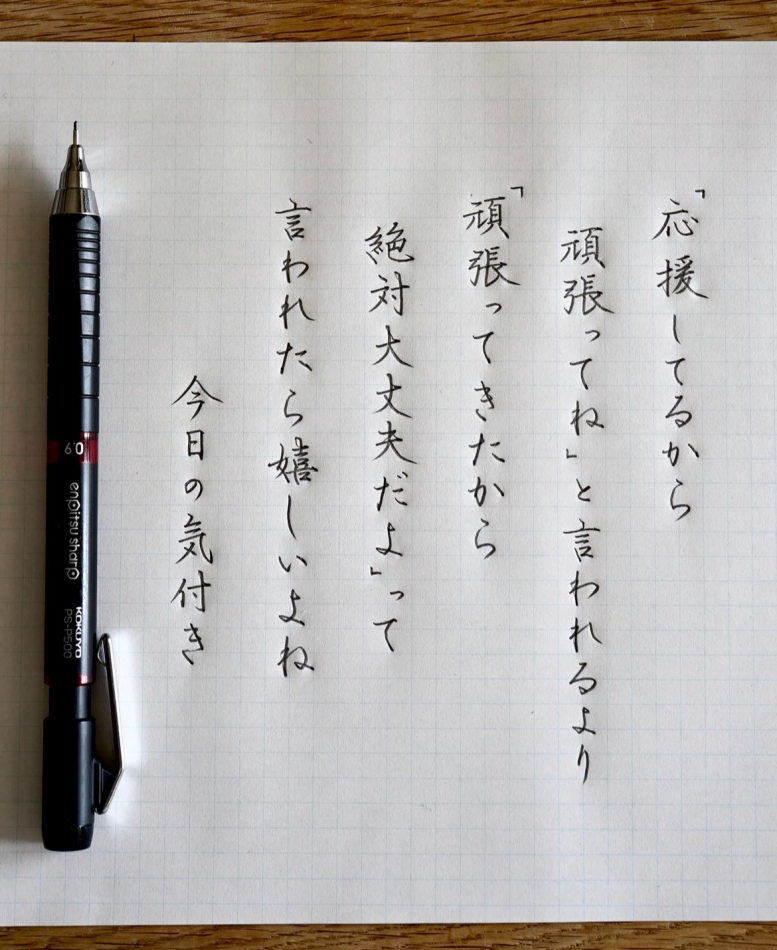 「応援してるから
頑張ってね」と言われるより
「頑張ってきたから
絶対大丈夫だよ」って
言われたら嬉しいよね
今日の気付き
0.9
enpitsu sharp
KOKUYO
PS-P500